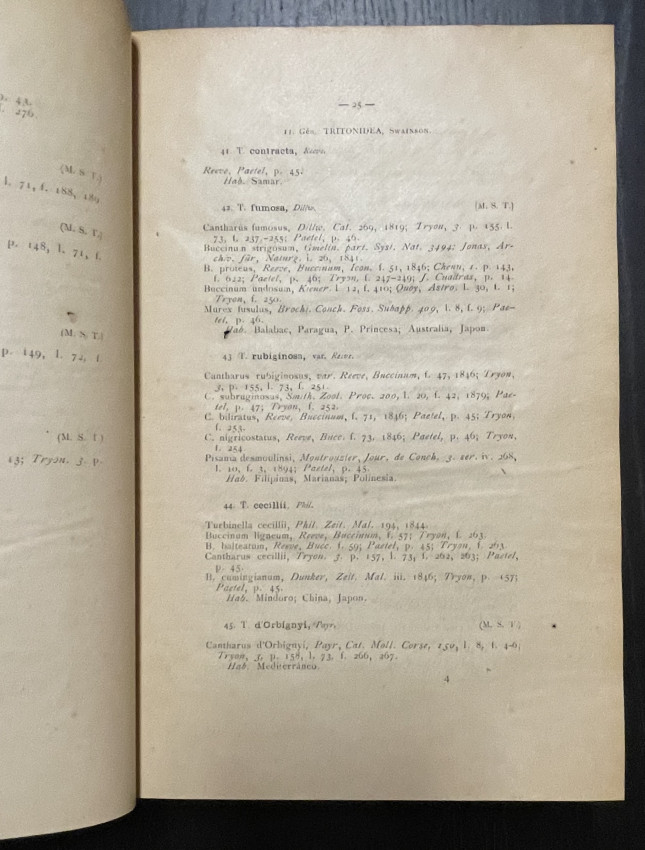 p. 43.
f. 276.
(M. S. T.)
l. 71, f. 188, 189
(M. S. T.)
p. 148, l. 71, f.
(M. S. T.)
p. 149, l. 72, f.
(M. S. T)
13; Tryon. 3. p.
— 25 —
11. Gén. TRITONIDEA, Swainson.
41. T. contracta, Reeve.
Reeve, Paetel, p. 45.
Hab. Samar.
42. T. fumosa, Dillw. (M. S. T.)
Cantharus fumosus, Dillw. Cat. 269, 1819; Tryon, 3. p. 155. l.
73, f. 237,-255; Paetel, p. 46.
Buccinum strigosum, Gmelin. part. Syst. Nat. 3494; Jonas, Ar-
chiv. für, Naturg. l. 26, 1841.
B. proteus, Reeve, Buccinum, Icon. f. 51, 1846; Chenu, 1. p. 143,
f. 622; Paetel, p. 46; Tryon, f. 247-249; J. Cuadras, p. 14.
Buccinum undosum, Kiener. l. 12, f. 410; Quoy, Astro. l. 30, f. 1;
Tryon, f. 250.
Murex fusulus, Brochi. Conch. Foss. Subapp. 409, l. 8, f. 9; Pae-
tel, p. 46.
Hab. Balabac, Paragua, P. Princesa; Australia, Japon.
43 T. rubiginosa, var. Reeve.
Cantharus rubiginosus, var. Reeve, Buccinum, f. 47, 1846; Tryon,
3, p. 155, l. 73, f. 251.
C. subruginosus, Smith. Zool. Proc. 200, l. 20, f. 42, 1879; Pae-
tel, p. 47; Tryon, f. 252.
C. biliratus, Reeve, Buccinum, f. 71, 1846; Paetel, p. 45; Tryon,
f. 253.
C. nigricostatus, Reeve, Bucc. f. 73. 1846; Paetel, p. 46; Tryon,
f. 254
Pisania desmoulinsi, Montrouzier, Jour. de Conch. 3. ser. iv. 268,
l. 10, f. 3, 1894; Paetel, p. 45.
Hab. Filipinas, Marianas; Polinesia.
44. T. cecillii, Phil.
Turbinella cecillii, Phil. Zeit. Mal. 194, 1844.
Buccinum ligneum, Reeve, Buccinum, f. 57; Tryon, f. 263.
B. balteatum, Reeve, Bucc. f. 59; Paetel, p. 45; Tryon, f. 263.
Cantharus cecilli, Tryon. 3. p. 157, l. 73, f. 262, 263; Paetel,
p. 45.
B. cumingianum, Dunker, Zeit. Mal. iii. 1846; Tryon, p. 157;
Paetel, p. 45.
Hab. Mindoro; China, Japon.
45. T. d'Orbignyi, Payr. (M. S. T.)
Cantharus d'Orbignyi, Payr, Cat. Moll. Corse, 159, l. 8, f. 4-6;
Tryon, 3, p. 158, l. 73, f. 266, 267.
Hab. Mediterráneo.
4